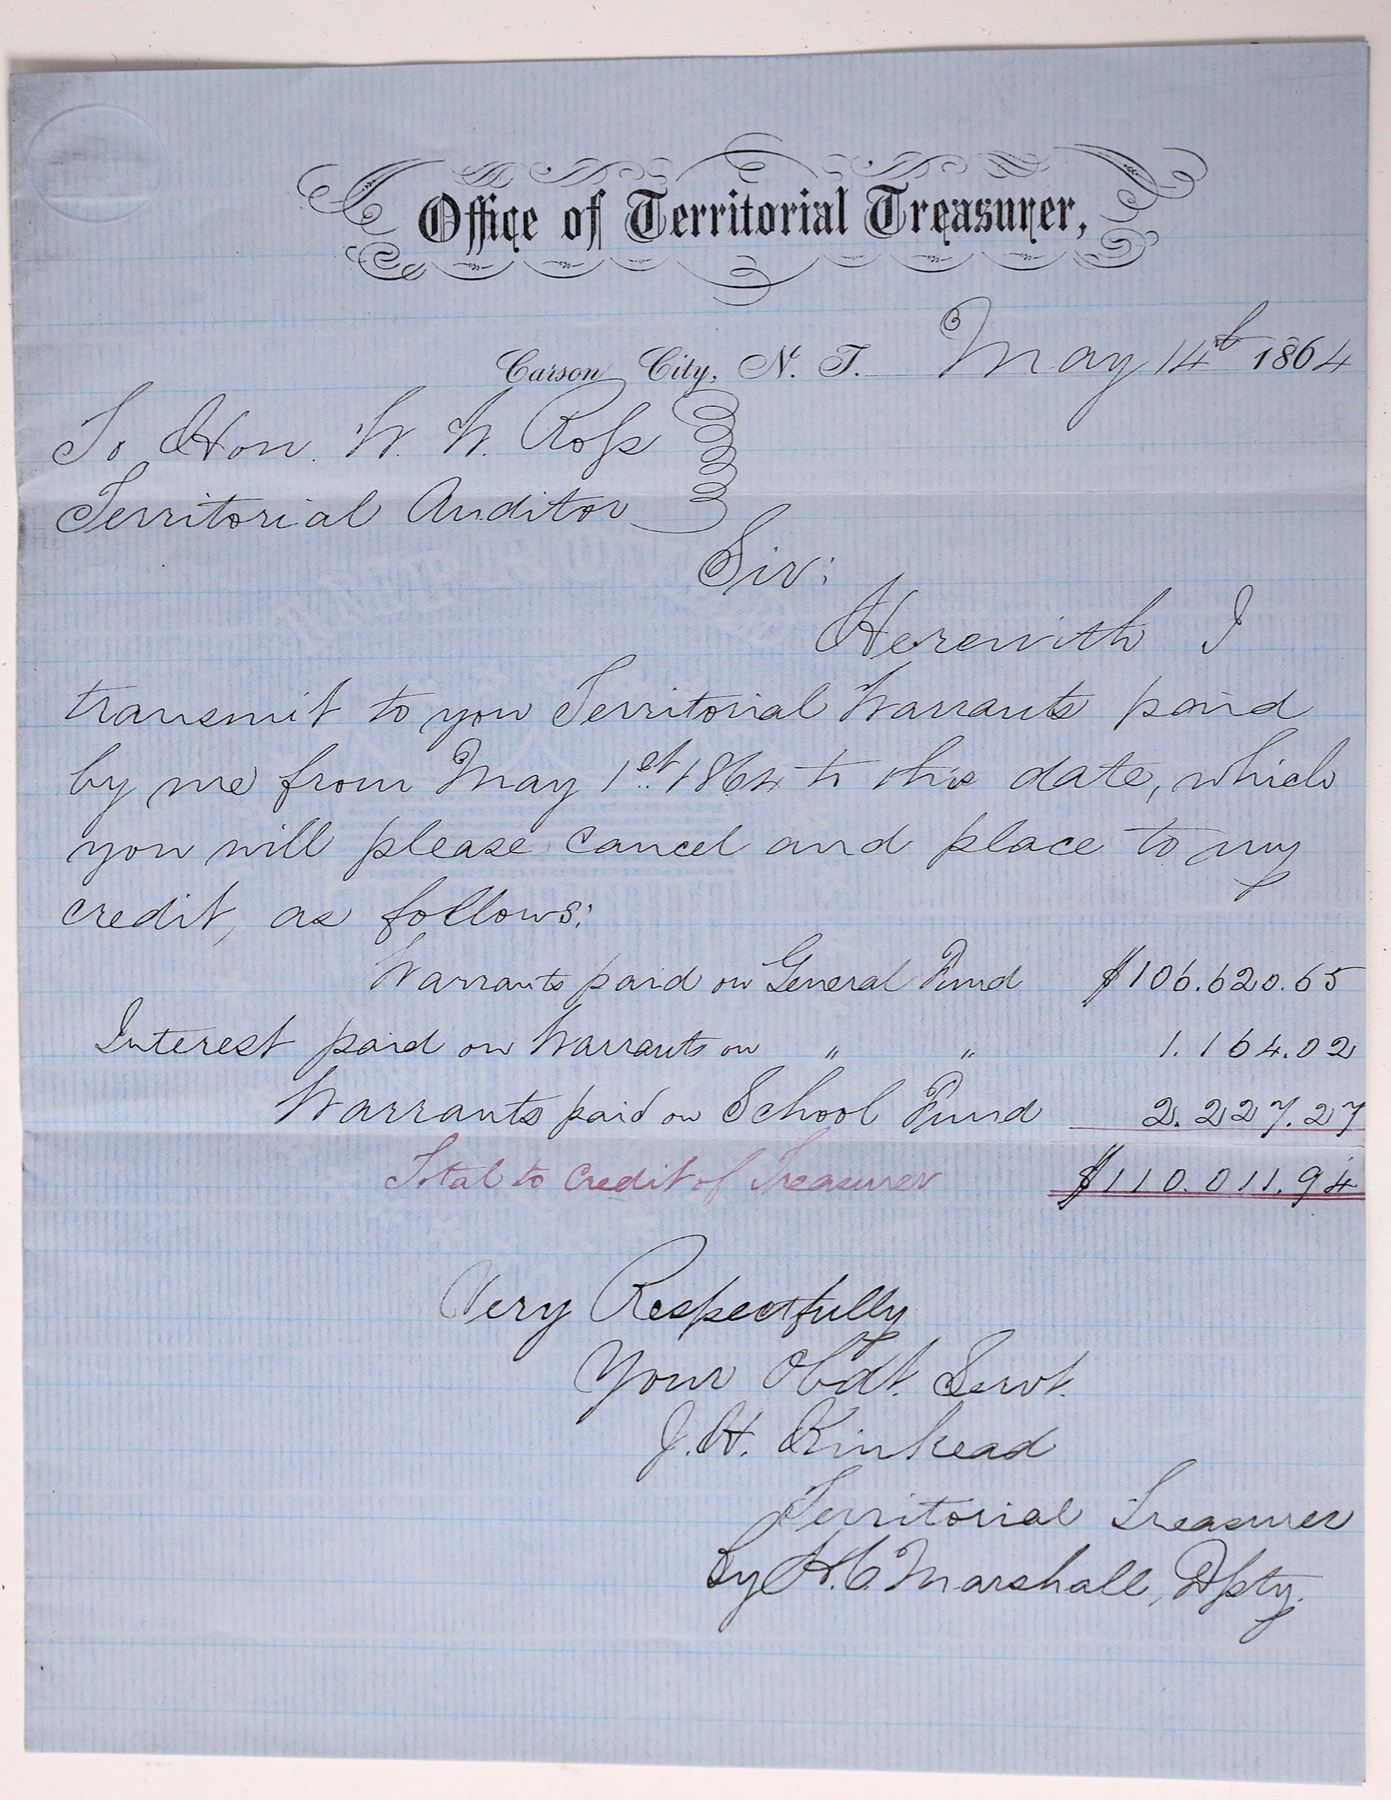 Office of Territorial Treasurer,
Carson City, N. T. May 14th 1864
To Hon. W. W. Roſs
Territorial Auditor
Sir:
Herewith I
transmit to you Territorial Warrants paid
by me from May 1st. 1864 to this date, which
you will please cancel and place to my
credit, as follows:
Warrants paid on General Fund $106.620.65
Interest paid on Warrants on " " 1.164.02
Warrants paid on School Fund 2.227.27
Total to Credit of Treasurer $110.011.94
Very Respectfully
Your Obdt. Servt.
J. H. Kinkead
Territorial Treasurer
By H. C. Marshall, Dpty.